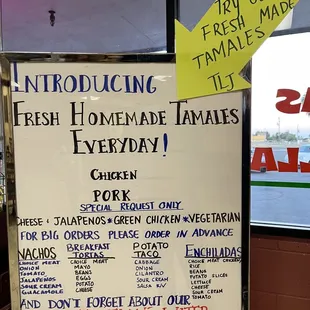 TRY OUR
FRESH MADE
TAMALES
TLJ
INTRODUCING
FRESH HOMEMADE TAMALES
EVERYDAY!
CHICKEN
PORK
SPECIAL REQUEST ONLY
CHEESE & JALAPEÑOS * GREEN CHICKEN * VEGETARIAN
FOR BIG ORDERS PLEASE ORDER IN ADVANCE
NACHOS
CHOICE MEAT
ONION
TOMATO
BEANS
JALAPEÑOS
SOUR CREAM
GUACAMOLE
BREAKFAST
TORTAS
CHOICE MEAT
MAYO
BEANS
EGGS
POTATO
CHEESE
POTATO
TACO
CABBAGE
ONION
CILANTRO
SOUR CREAM
SALSA R/V
ENCHILADAS
CHOICE MEAT
RICE
BEANS
POTATO SLICES
CHEESE
LETTUCE
SOUR CREAM
TOMATO
AND DON'T FORGET ABOUT OUR